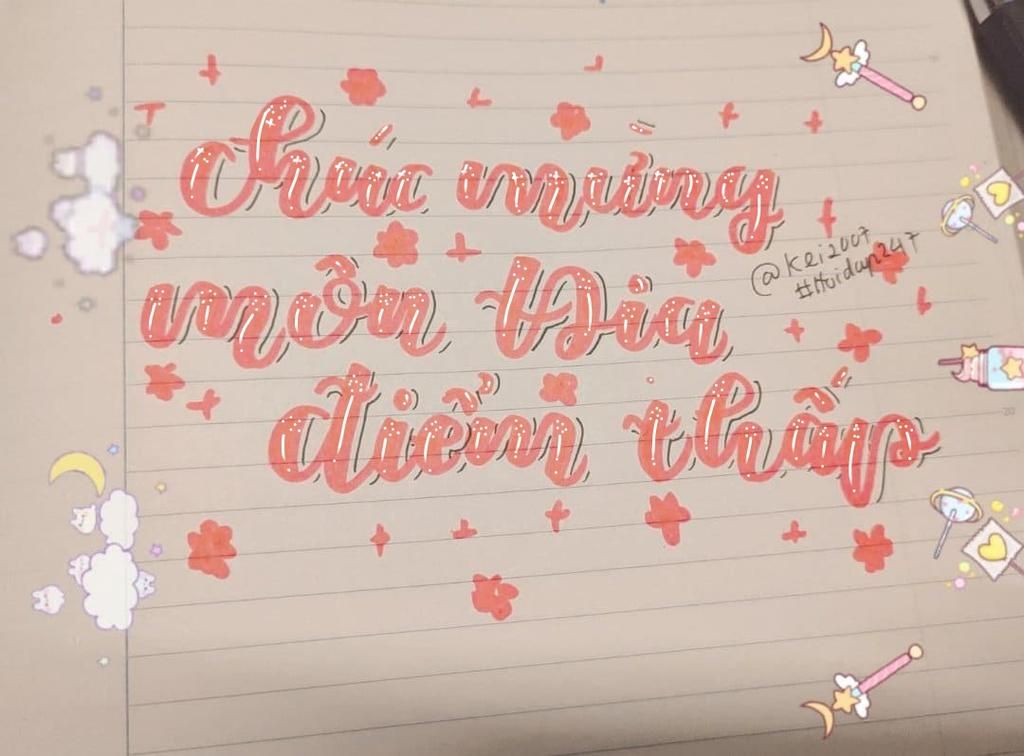 Chúc mừng
môn Địa
điểm thấp
@Kei2007
#Hoidap247
20